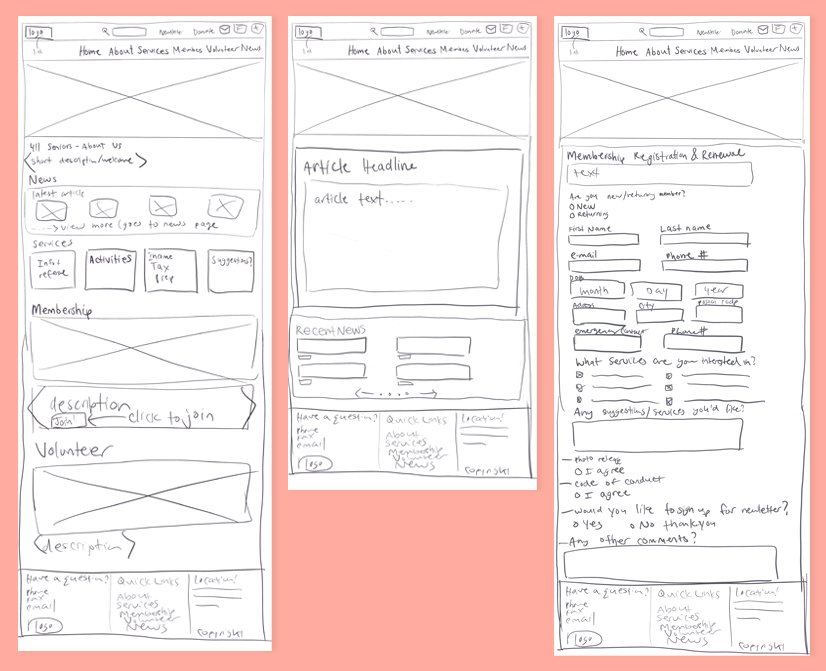 logo
Newsletter Donate
Home About Services Members Volunteer News
411 Seniors - About Us
short description/welcome
News
latest article
view more (goes to news page
Services
Activities
Income
Tax
Prep
Suggestions?
Membership
description
Join!
click to join
Volunteer
description
Have a question?
phone
fax
email
logo
Quick Links
About
Services
Membership
Volunteer
News
Location!
copyright
logo
Newsletter Donate
Home About Services Members Volunteer News
Article Headline
article text.....
Recent News
Have a question?
phone
fax
email
logo
Quick Links
About
Services
Membership
Volunteer
News
Location!
copyright
logo
Newsletter Donate
Home About Services Members Volunteer News
Membership Registration & Renewal
text
Are you new/returning member?
New
Returning
First Name Last name
e-mail Phone #
DOB
month Day year
Address City postal code
emergency contact Phone #
What services are you interested in?
Any suggestions/services you'd like?
photo release
I agree
code of conduct
I agree
would you like to sign up for newsletter?
Yes No thank you
Any other comments?
Have a question?
phone
fax
email
logo
Quick Links
About
Services
Membership
Volunteer
News
Location!
copyright